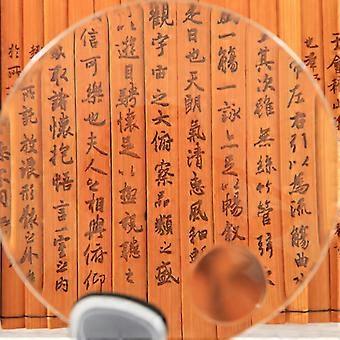 會稽山
左右引以為流觴曲水
其次雖無絲竹管絃
一觴一詠亦足以暢敘
是日也天朗氣清惠風和暢
觀宇宙之大俯察品類之盛
以遊目騁懷足以極視聽之
信可樂也夫人之相與俯仰
取諸懷抱悟言一室之內
所託放浪形骸之外
於所